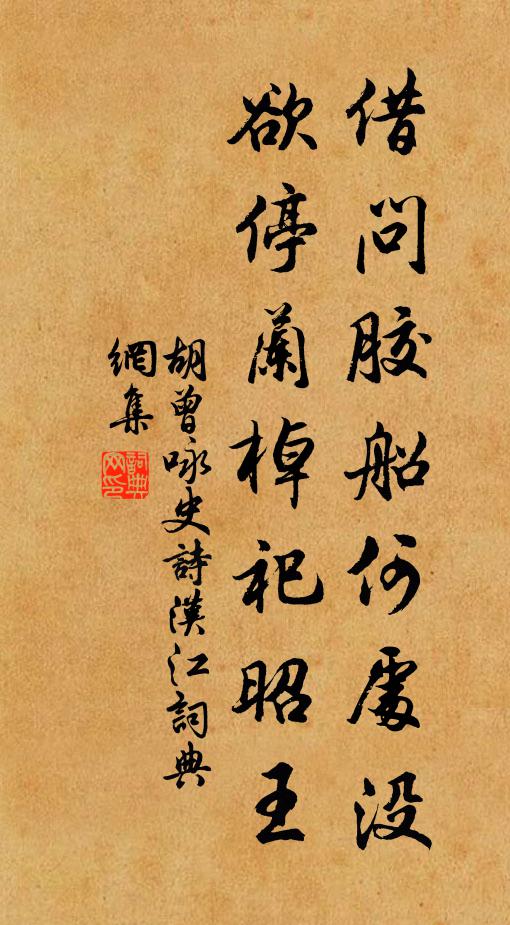 借問膠船何處没
欲停蘭棹祀昭王
胡曾咏史詩漢江詞典
網集
詞典
网印